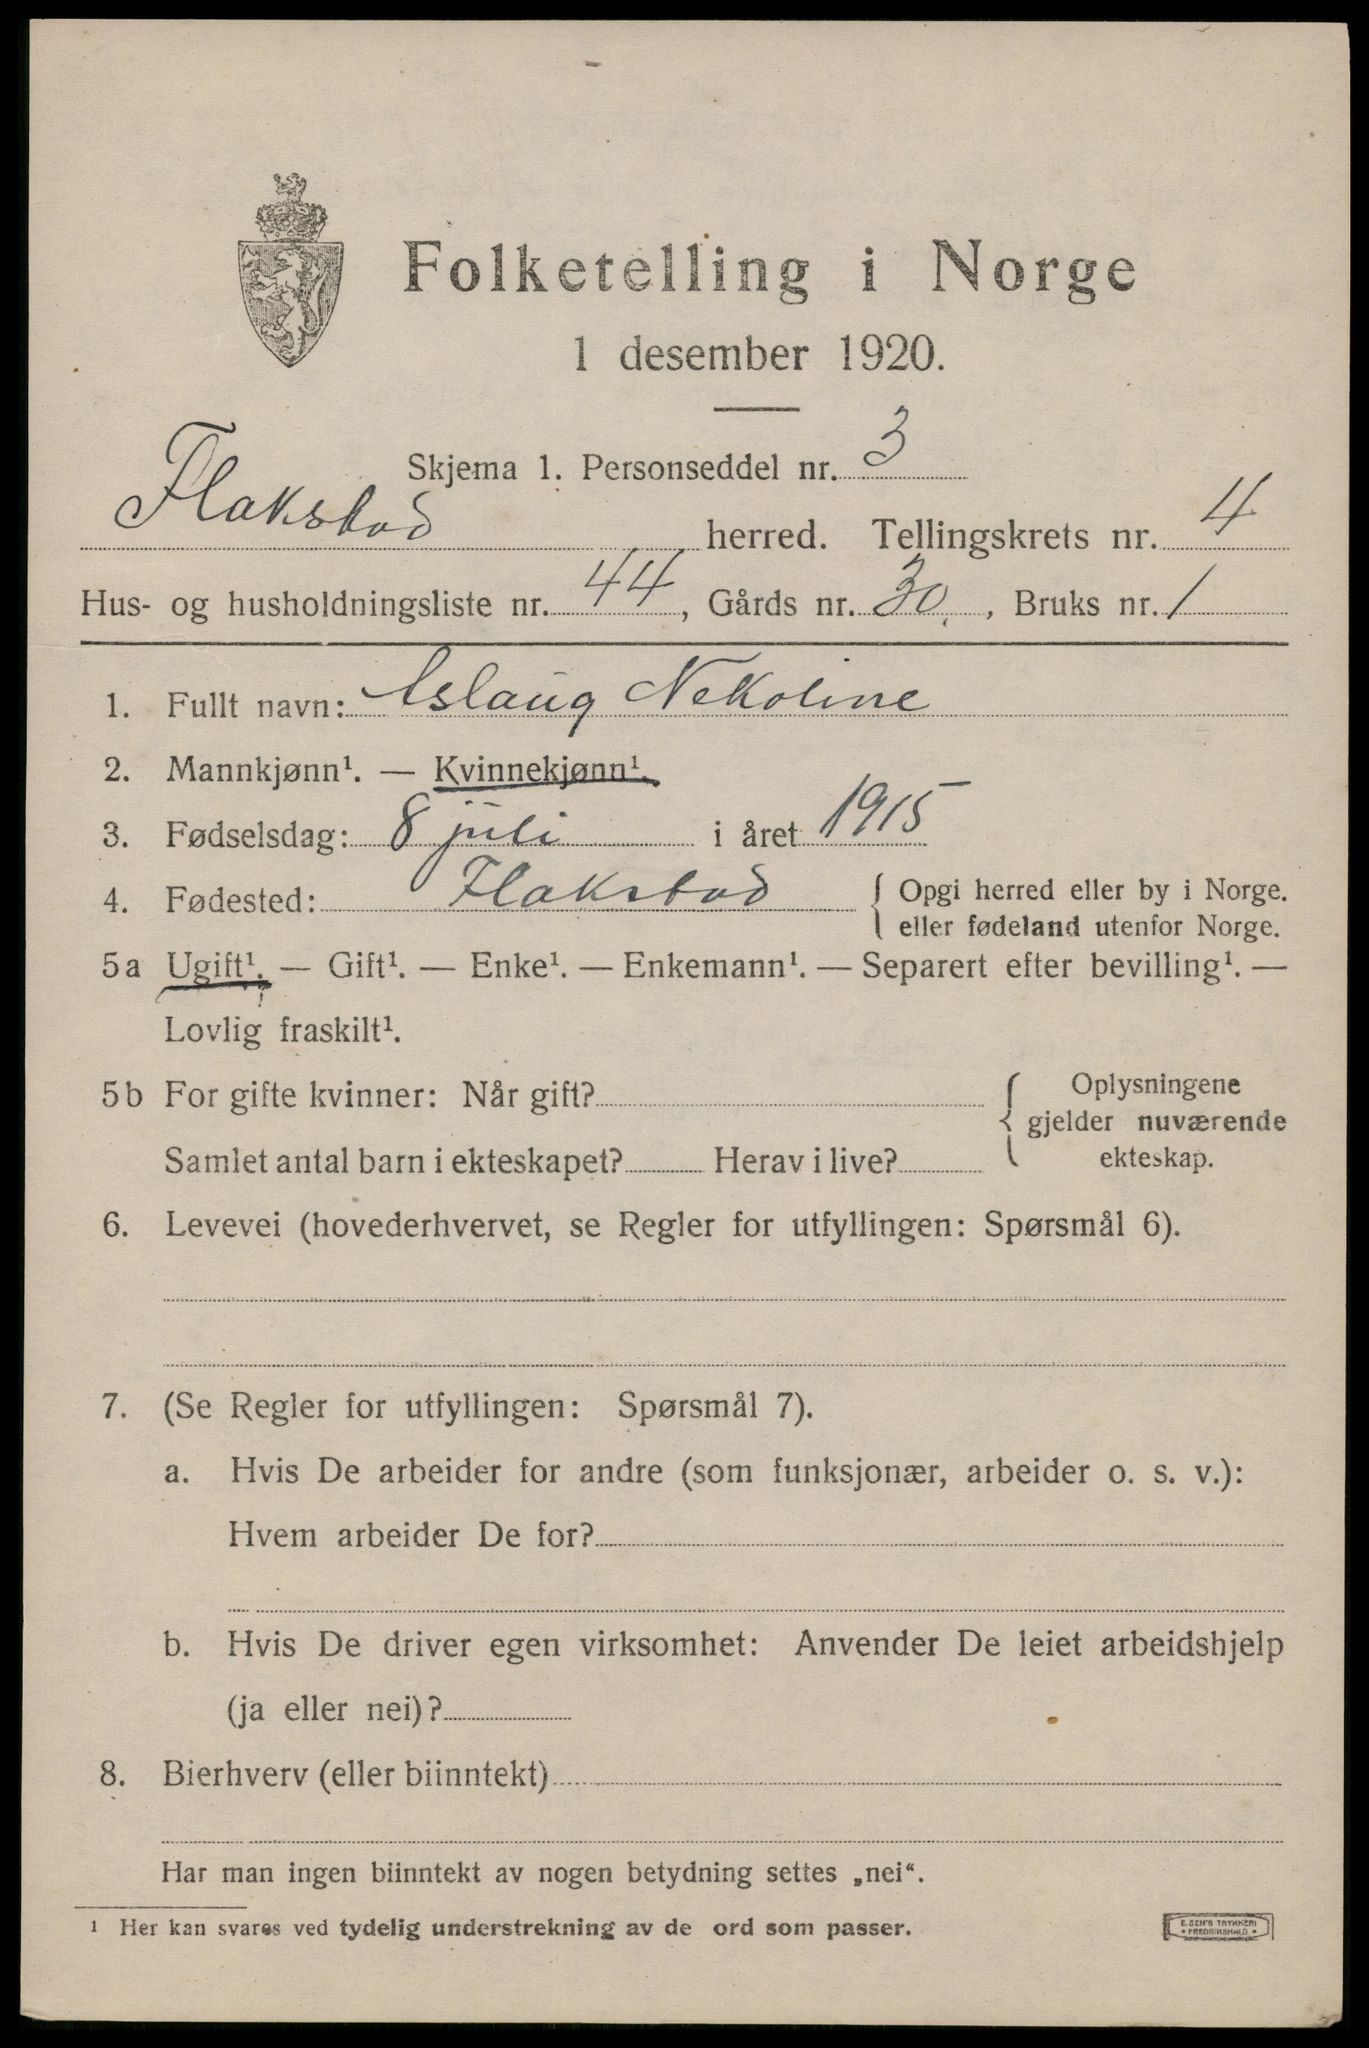 Folketelling i Norge
1 desember 1920.
Skjema 1. Personseddel nr. 3
Flakstad herred. Tellingskrets nr. 4
Hus- og husholdningsliste nr. 44, Gårds nr. 30, Bruks nr. 1
1. Fullt navn: Aslaug Nekoline
2. Mannkjønn¹. — Kvinnekjønn¹.
3. Fødselsdag: 8 juli i året 1915
4. Fødested: Flakstad { Opgi herred eller by i Norge.
eller fødeland utenfor Norge.
5a Ugift¹. — Gift¹. — Enke¹. — Enkemann¹. — Separert efter bevilling¹. —
Lovlig fraskilt¹.
5b For gifte kvinner: Når gift? { Oplysningene
gjelder nuværende
Samlet antal barn i ekteskapet? Herav i live? ekteskap.
6. Levevei (hovederhvervet, se Regler for utfyllingen: Spørsmål 6).
7. (Se Regler for utfyllingen: Spørsmål 7).
a. Hvis De arbeider for andre (som funksjonær, arbeider o. s. v.):
Hvem arbeider De for?
b. Hvis De driver egen virksomhet: Anvender De leiet arbeidshjelp
(ja eller nei)?
8. Bierhverv (eller biinntekt)
Har man ingen biinntekt av nogen betydning settes „nei“.
¹ Her kan svares ved tydelig understrekning av de ord som passer.
E. SEM'S TRYKKERI
• FREDRIKSHALD •